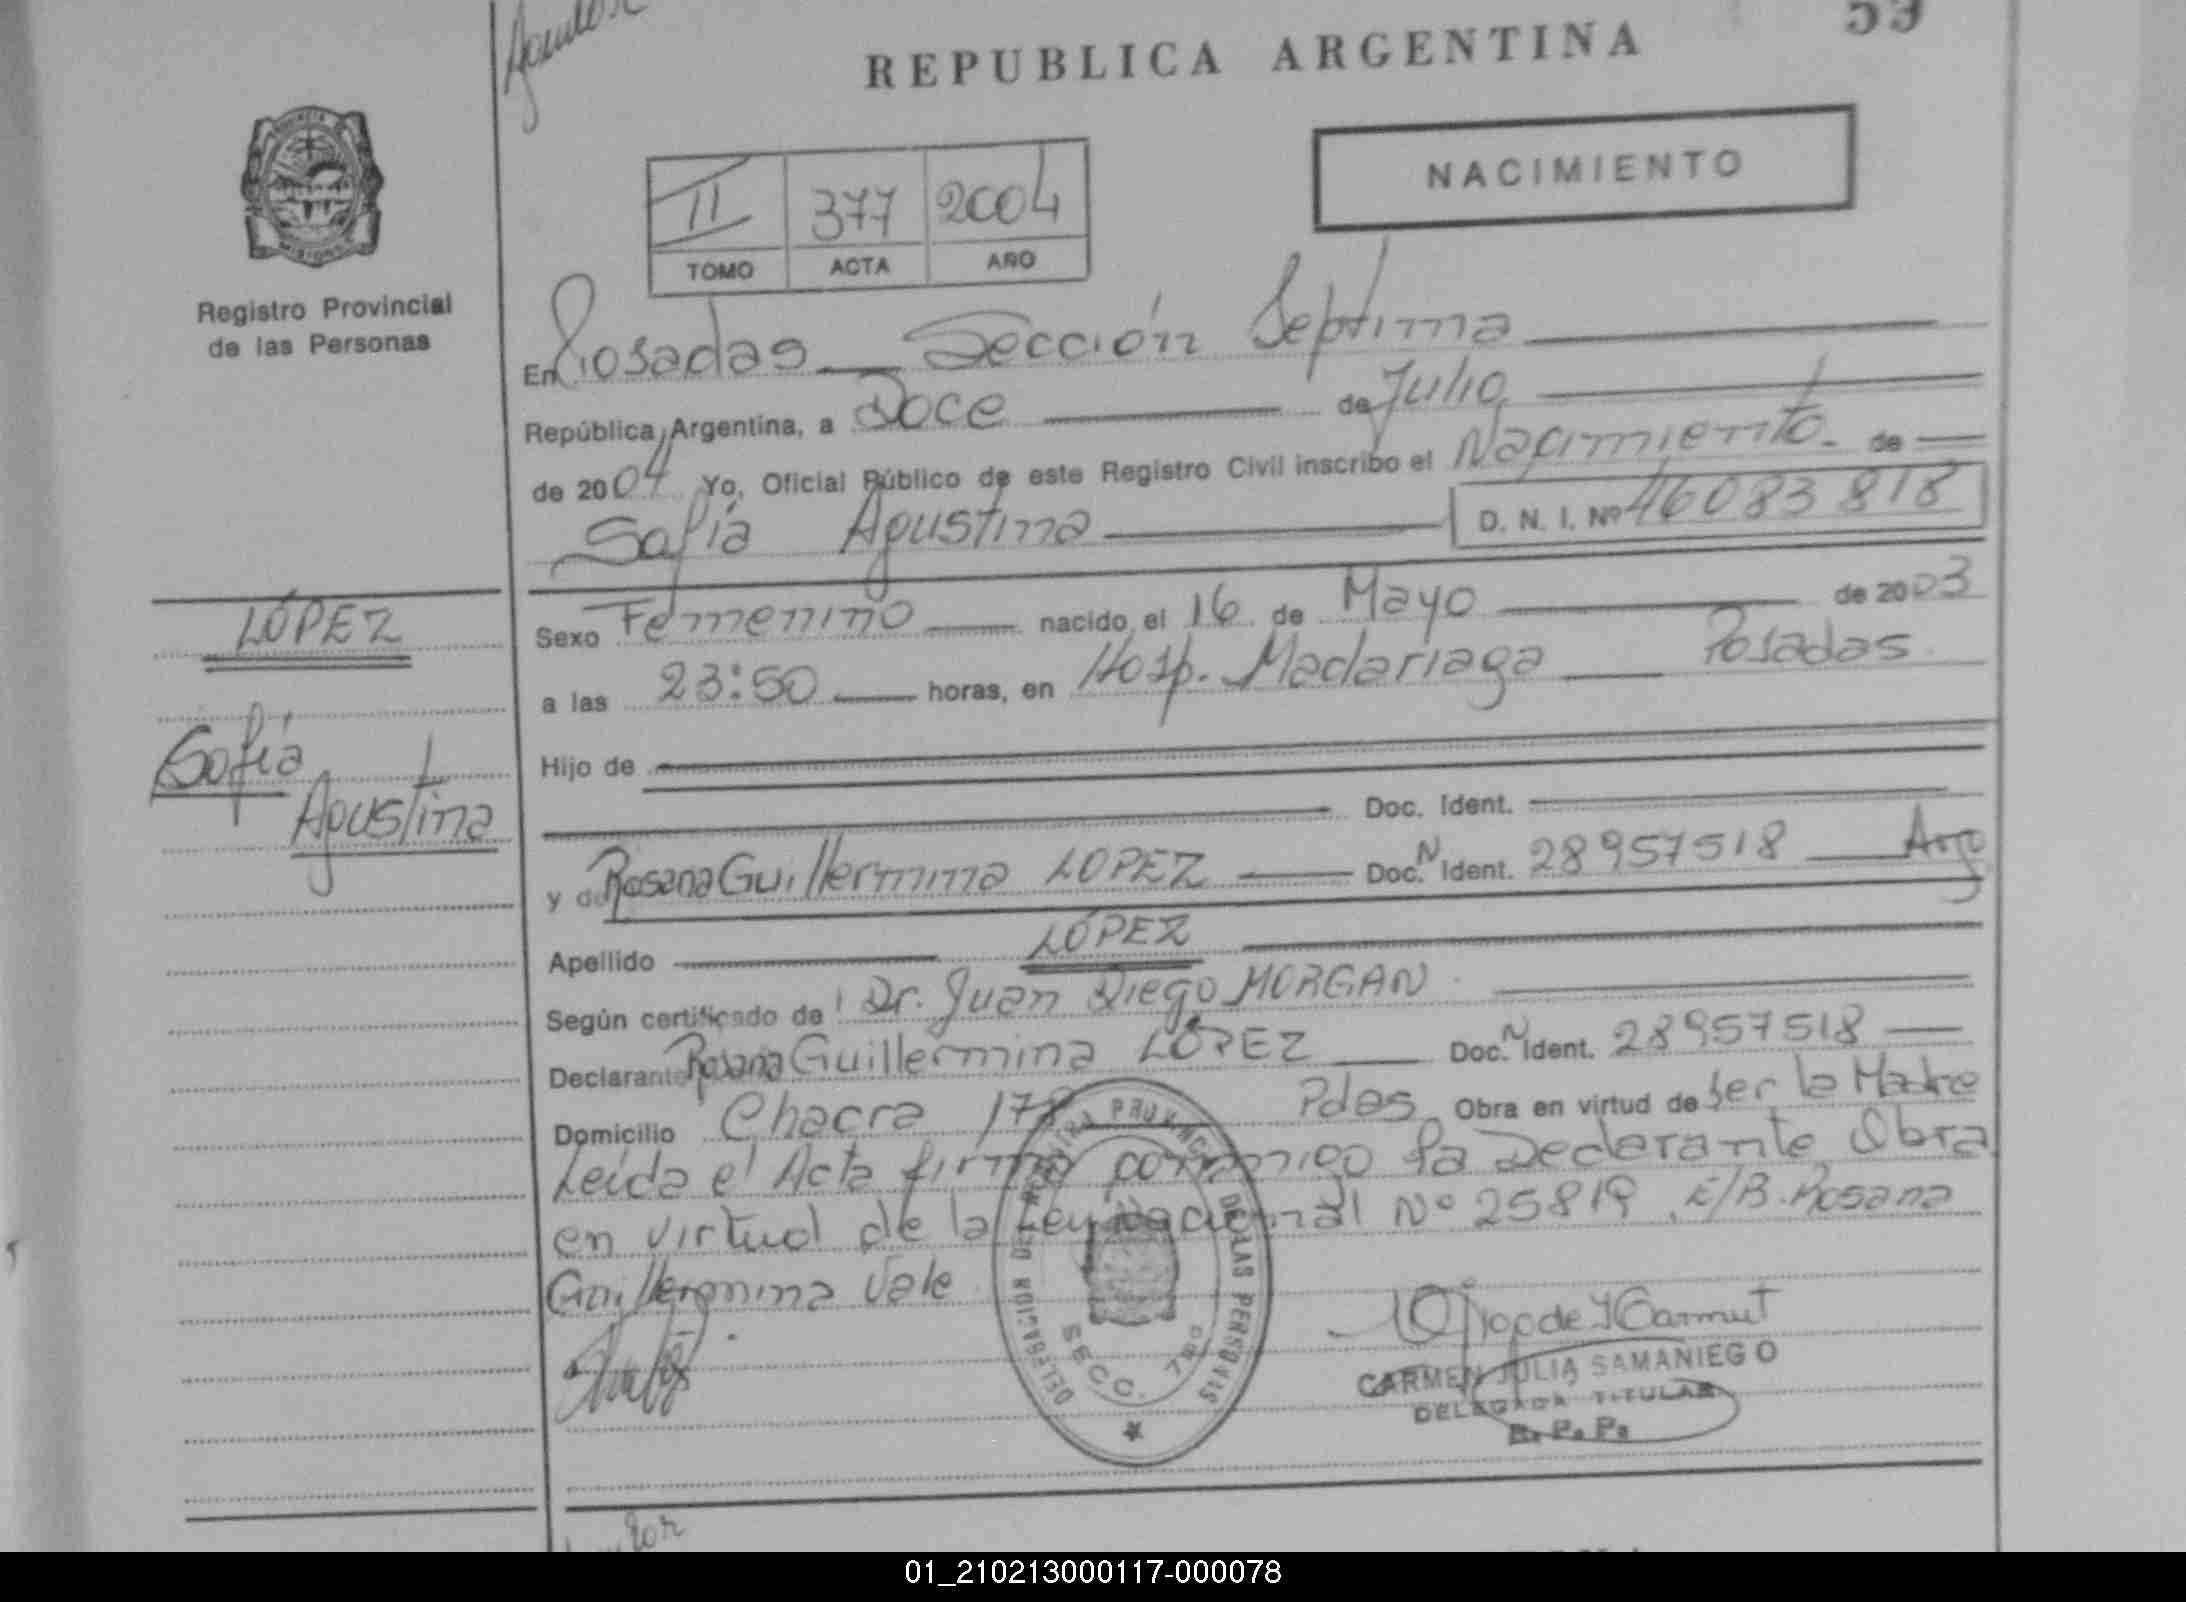 53
REPUBLICA ARGENTINA
NACIMIENTO
II 377 2004
TOMO ACTA AÑO
Registro Provincial
de las Personas
En Posadas Sección Septima
República Argentina, a Doce de Julio
de 2004 Yo, Oficial Público de este Registro Civil inscribo el Nacimiento de
Sofía Agustina D. N. I. Nº 46083818
LÓPEZ
Sofía
Agustina
Sexo Femenino nacido el 16 de Mayo de 2003
a las 23:50 horas, en Hosp. Madariaga Posadas
Hijo de
Doc. Ident.
y de Rosana Guillermina LOPEZ Doc. N Ident. 28957518 Arg
Apellido LÓPEZ
Según certificado de Dr. Juan Diego MORGAN
Declarante Rosana Guillermina LÓPEZ Doc. N Ident. 28957518
Domicilio Chacra 178 Pdas Obra en virtud de ser la Madre
Leída el Acta firma conmigo la Declarante Obra
en virtud de la Ley Nacional Nº 25819. E/B. Rosana
Guillermina Vale
REGISTRO PROVINCIAL DE LAS PERSONAS
DELEGACION
SECC. 7ma
CARMEN JULIA SAMANIEGO
DELEGADA TITULAR
R. P. P.
01_210213000117-000078